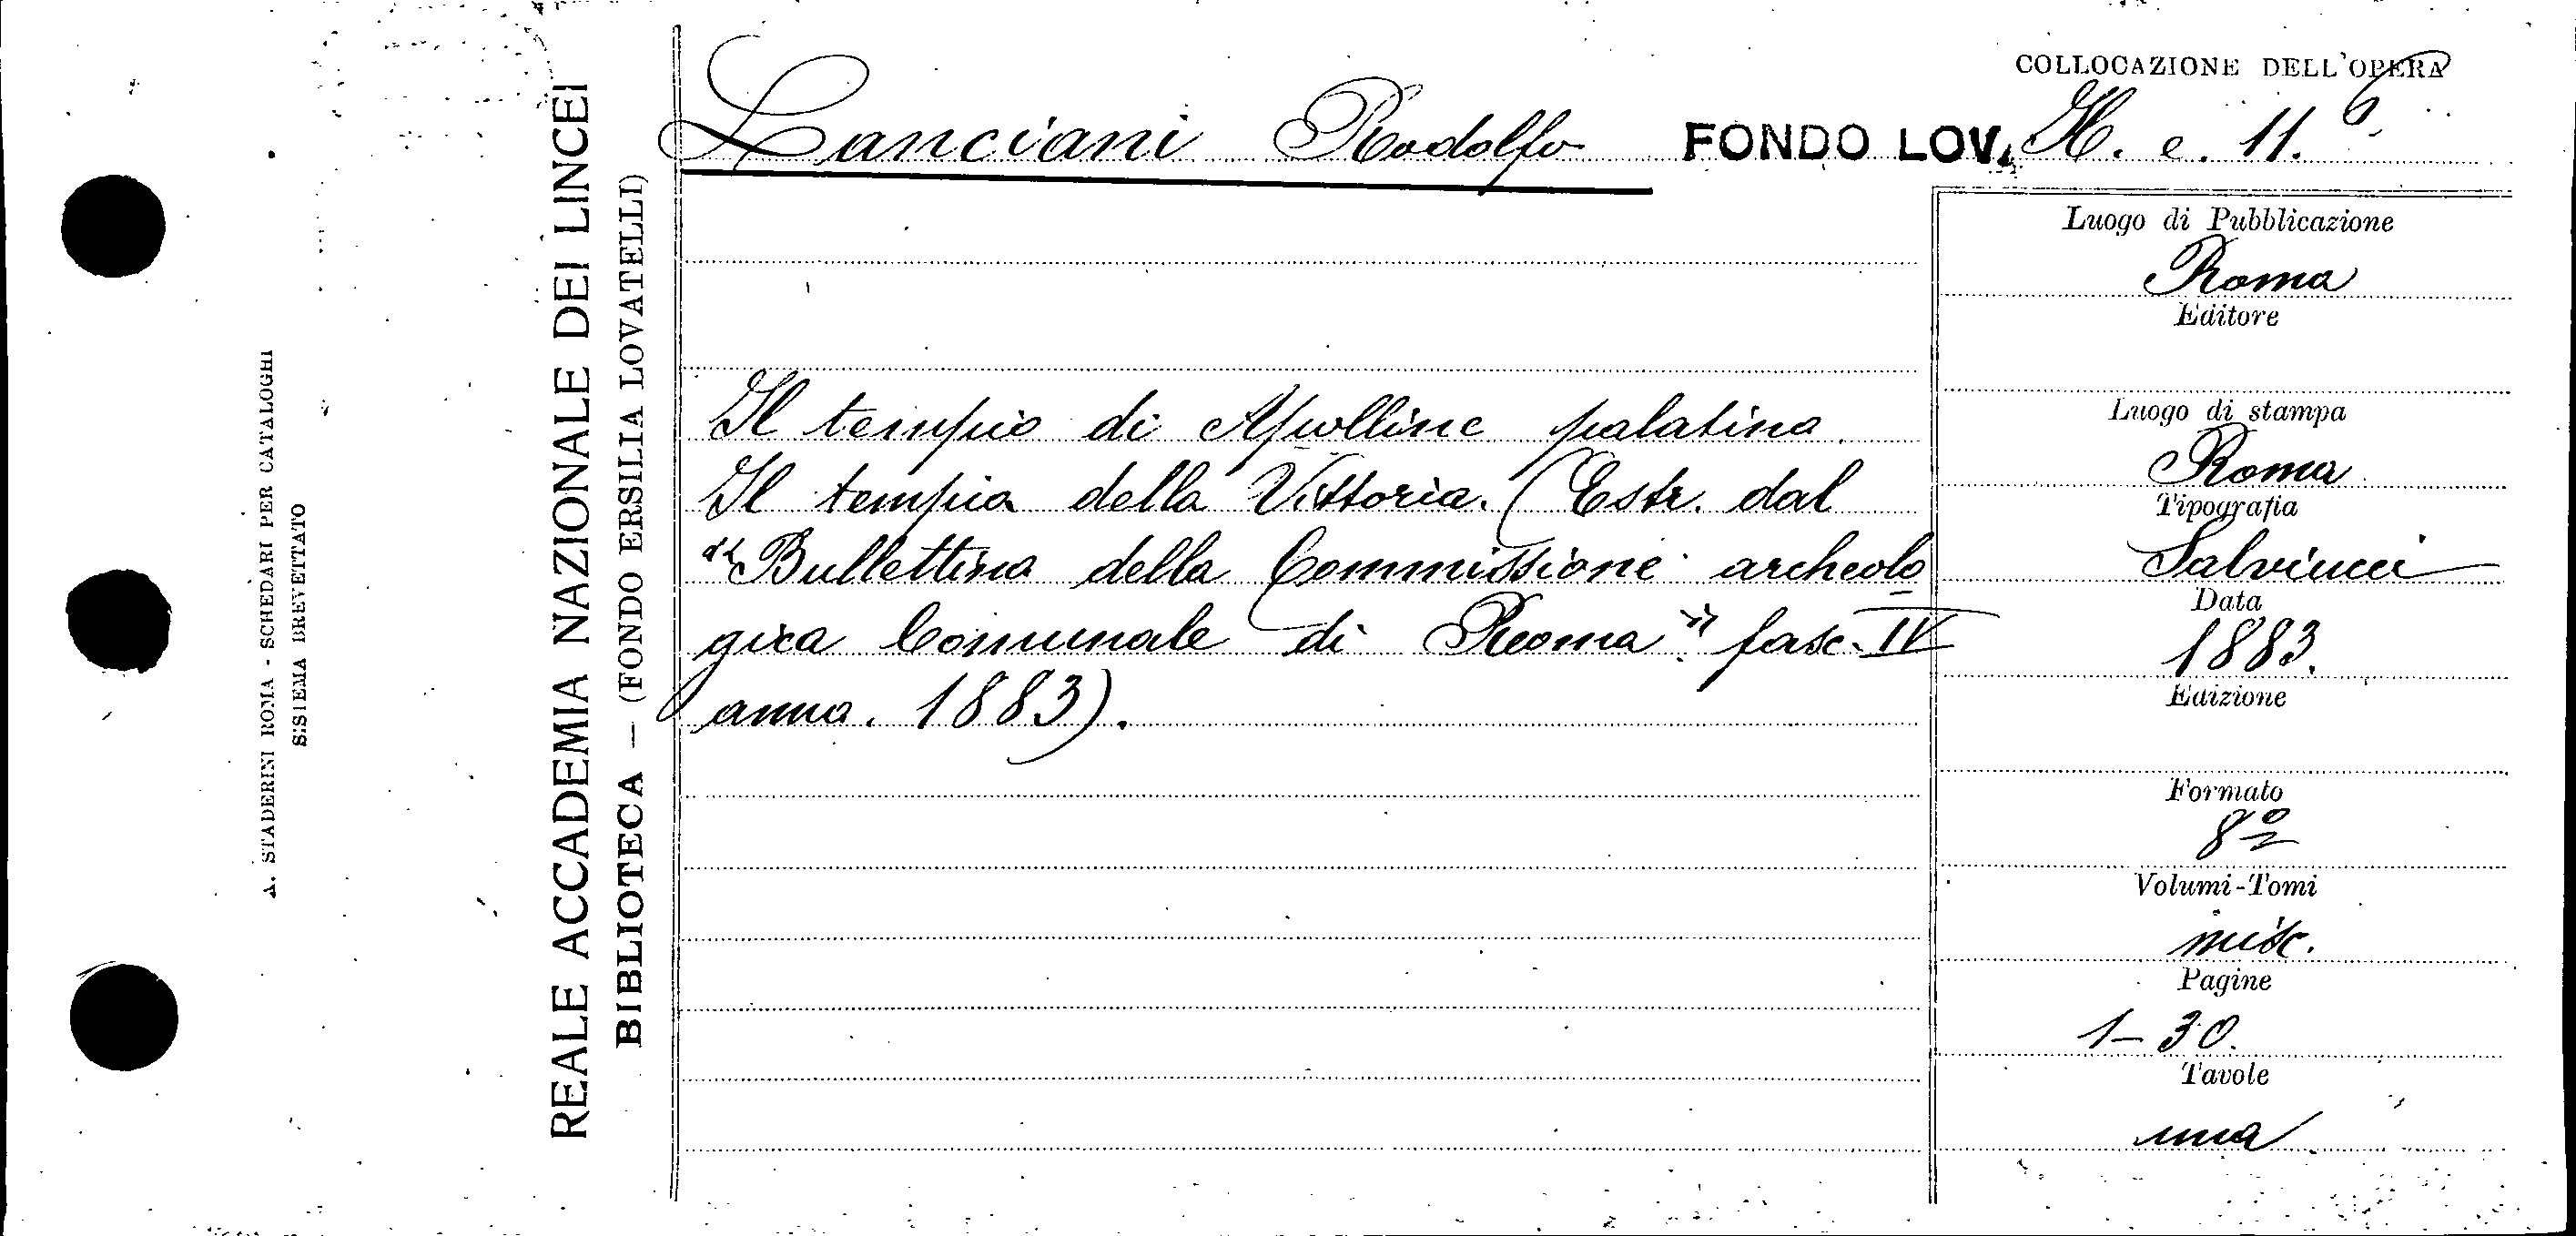 A. STADERINI ROMA - SCHEDARI PER CATALOGHI
SISTEMA BREVETTATO
REALE ACCADEMIA NAZIONALE DEI LINCEI
BIBLIOTECA — (FONDO ERSILIA LOVATELLI)
COLLOCAZIONE DELL'OPERA
Lanciani Rodolfo FONDO LOV. H. e. 11. 6
Il tempio di Apolline palatino.
Il tempio della Vittoria. (Estr. dal
"Bullettino della Commissione archeolo
gica Comunale di Roma" fasc. IV
anno. 1883).
Luogo di Pubblicazione
Roma
Editore
Luogo di stampa
Roma
Tipografia
Salviucci
Data
1883.
Edizione
Formato
8º
Volumi-Tomi
misc.
Pagine
1-30.
Tavole
una